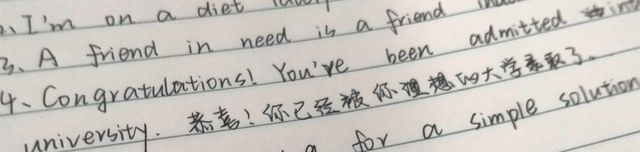 I'm on a diet
3. A friend in need is a friend
4、Congratulations! You've been admitted into
university. 恭喜！你已经被你理想的大学录取了。
for a simple solution